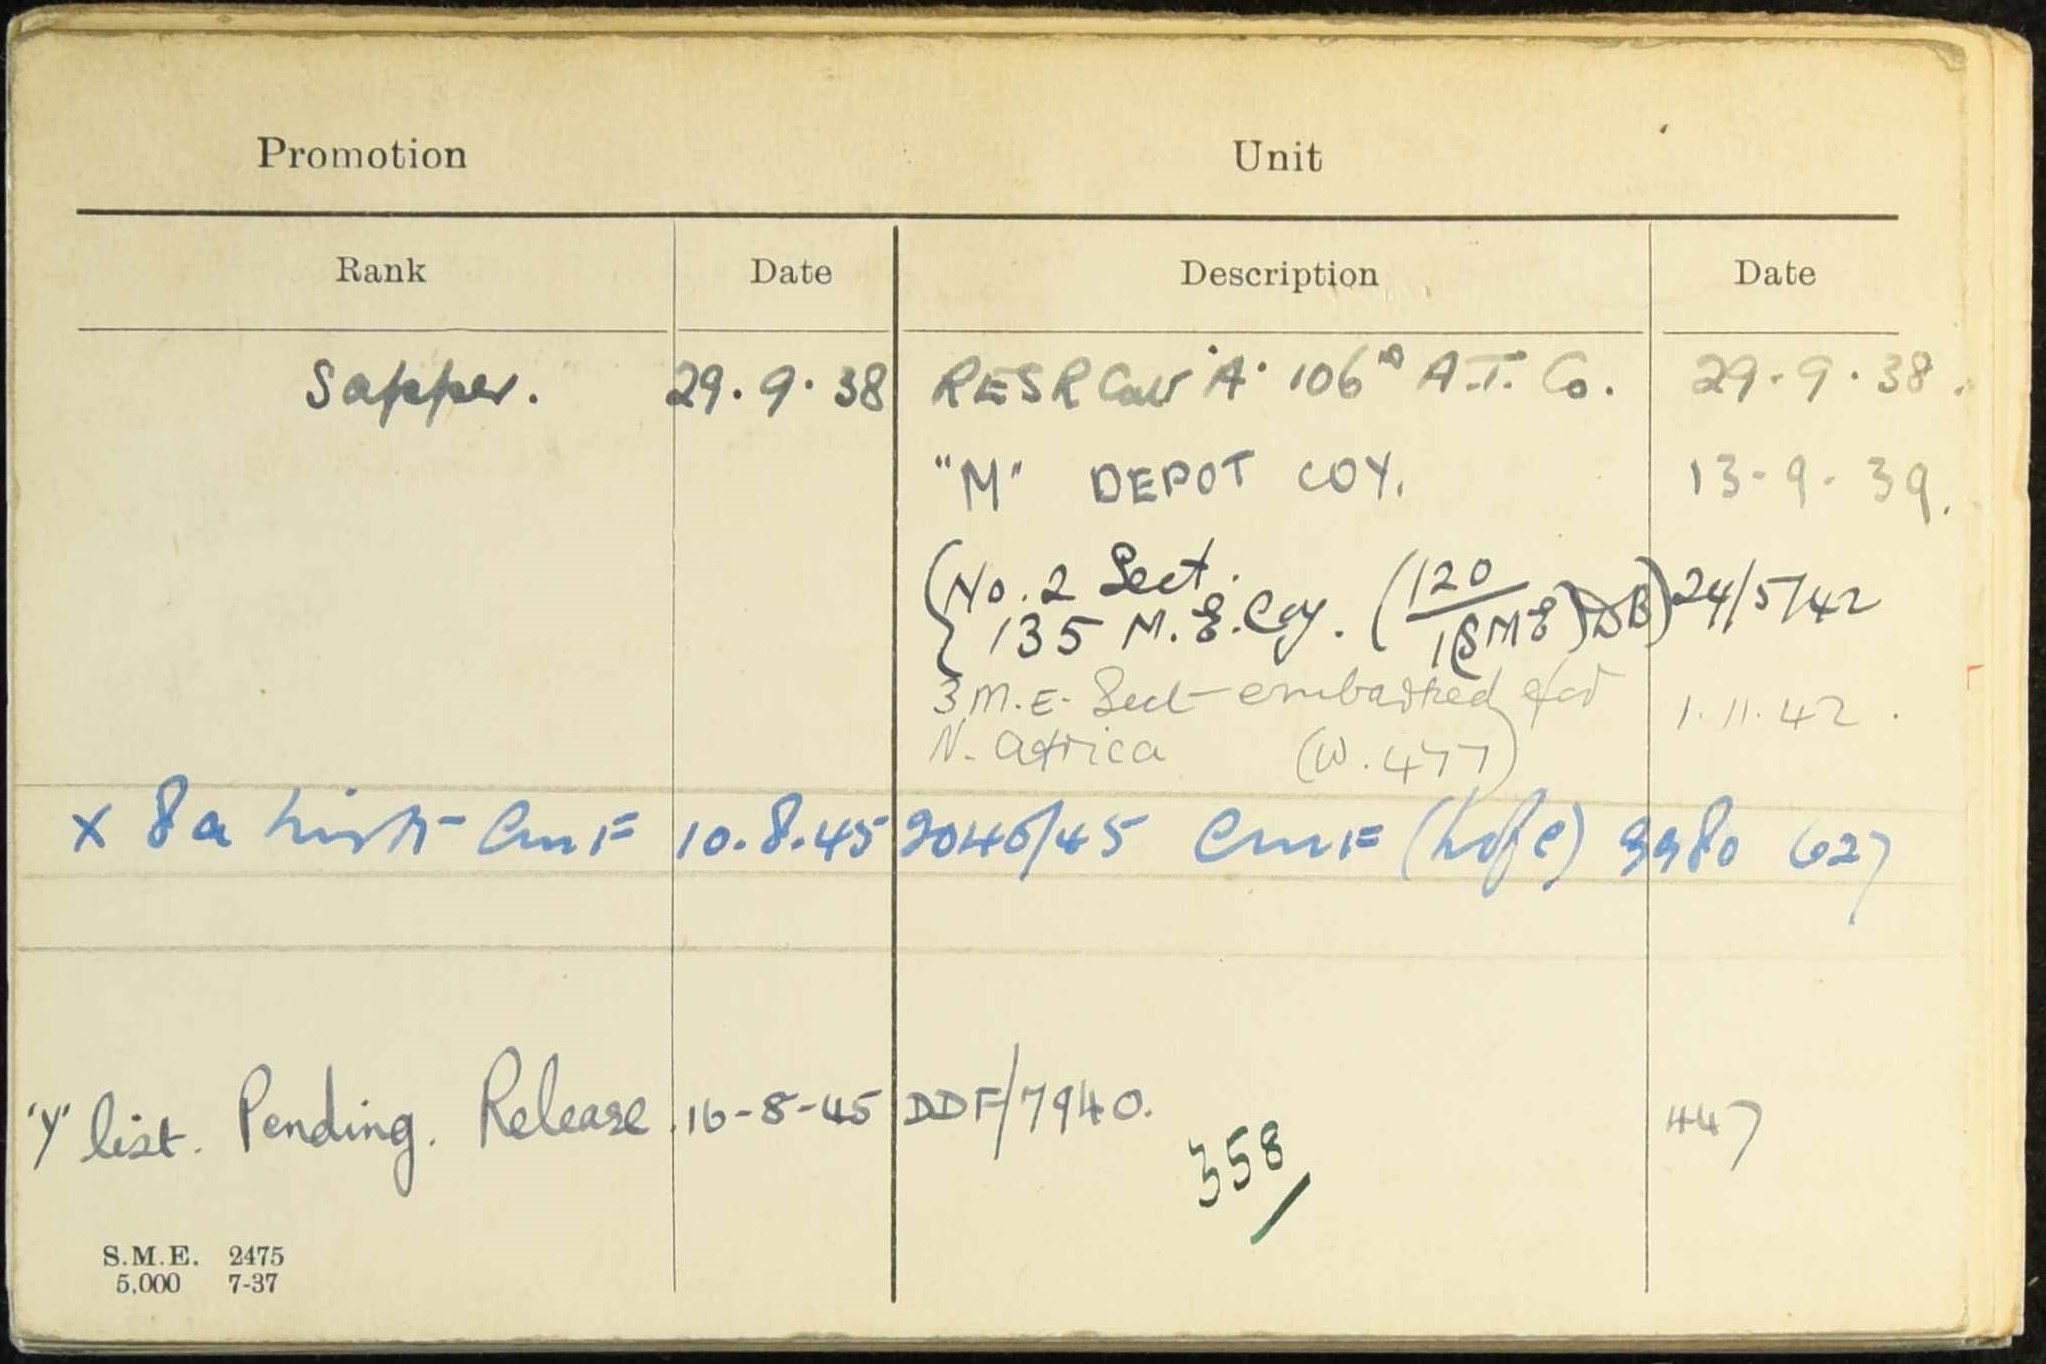 Promotion Unit
Rank Date Description Date
Sapper. 29.9.38 RESR Cat 'A' 106 A.T. Co. 29-9-38.
"M" DEPOT COY. 13-9-39.
(No. 2 Sect.
135 M.E. Coy. (120 DB) 24/5/42
3 M.E. Sect embarked for 1.11.42.
N. Africa (W.477)
X 8a CMF 10.8.45 2046/45 CMF 9980 627
'Y' list. Pending. Release. 16-8-45 DDF/7940. 447
358/
S.M.E. 2475
5,000 7-37